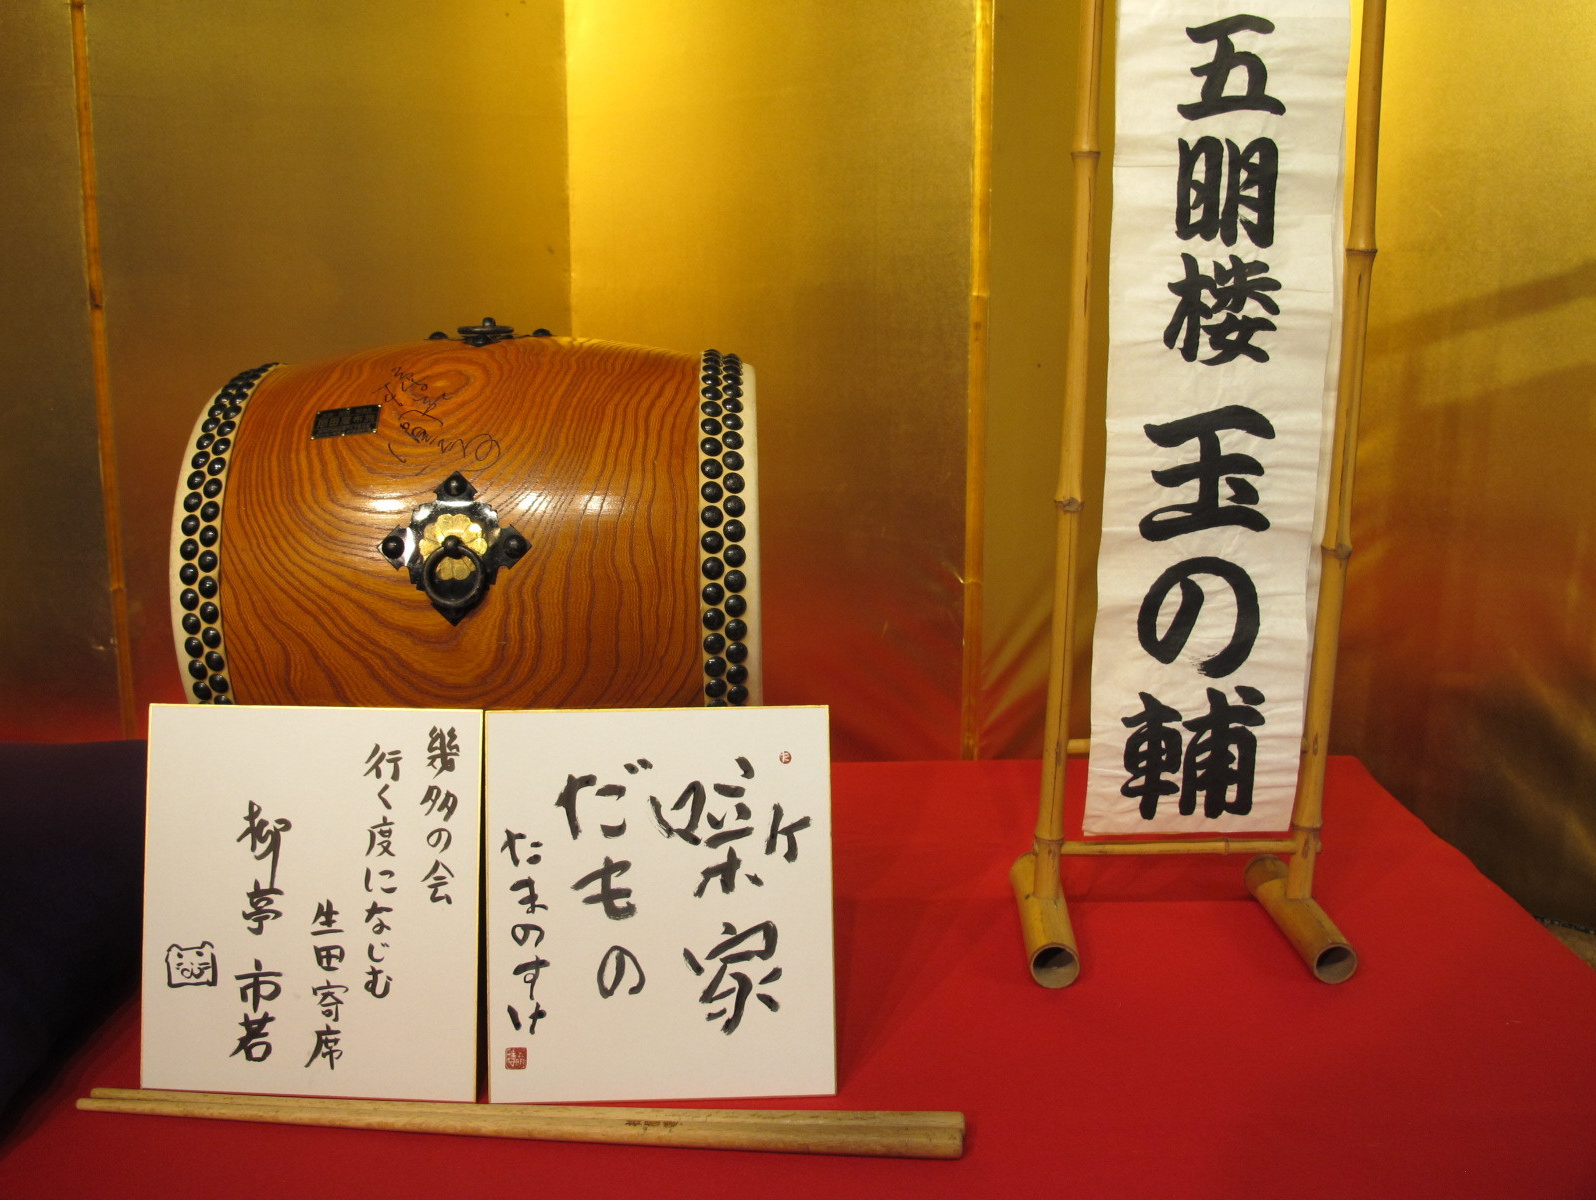 五明楼 玉の輔
噺ケ家
だもの
たまのすけ
幾多の会
行く度になじむ
生田寄席
柳亭 市若